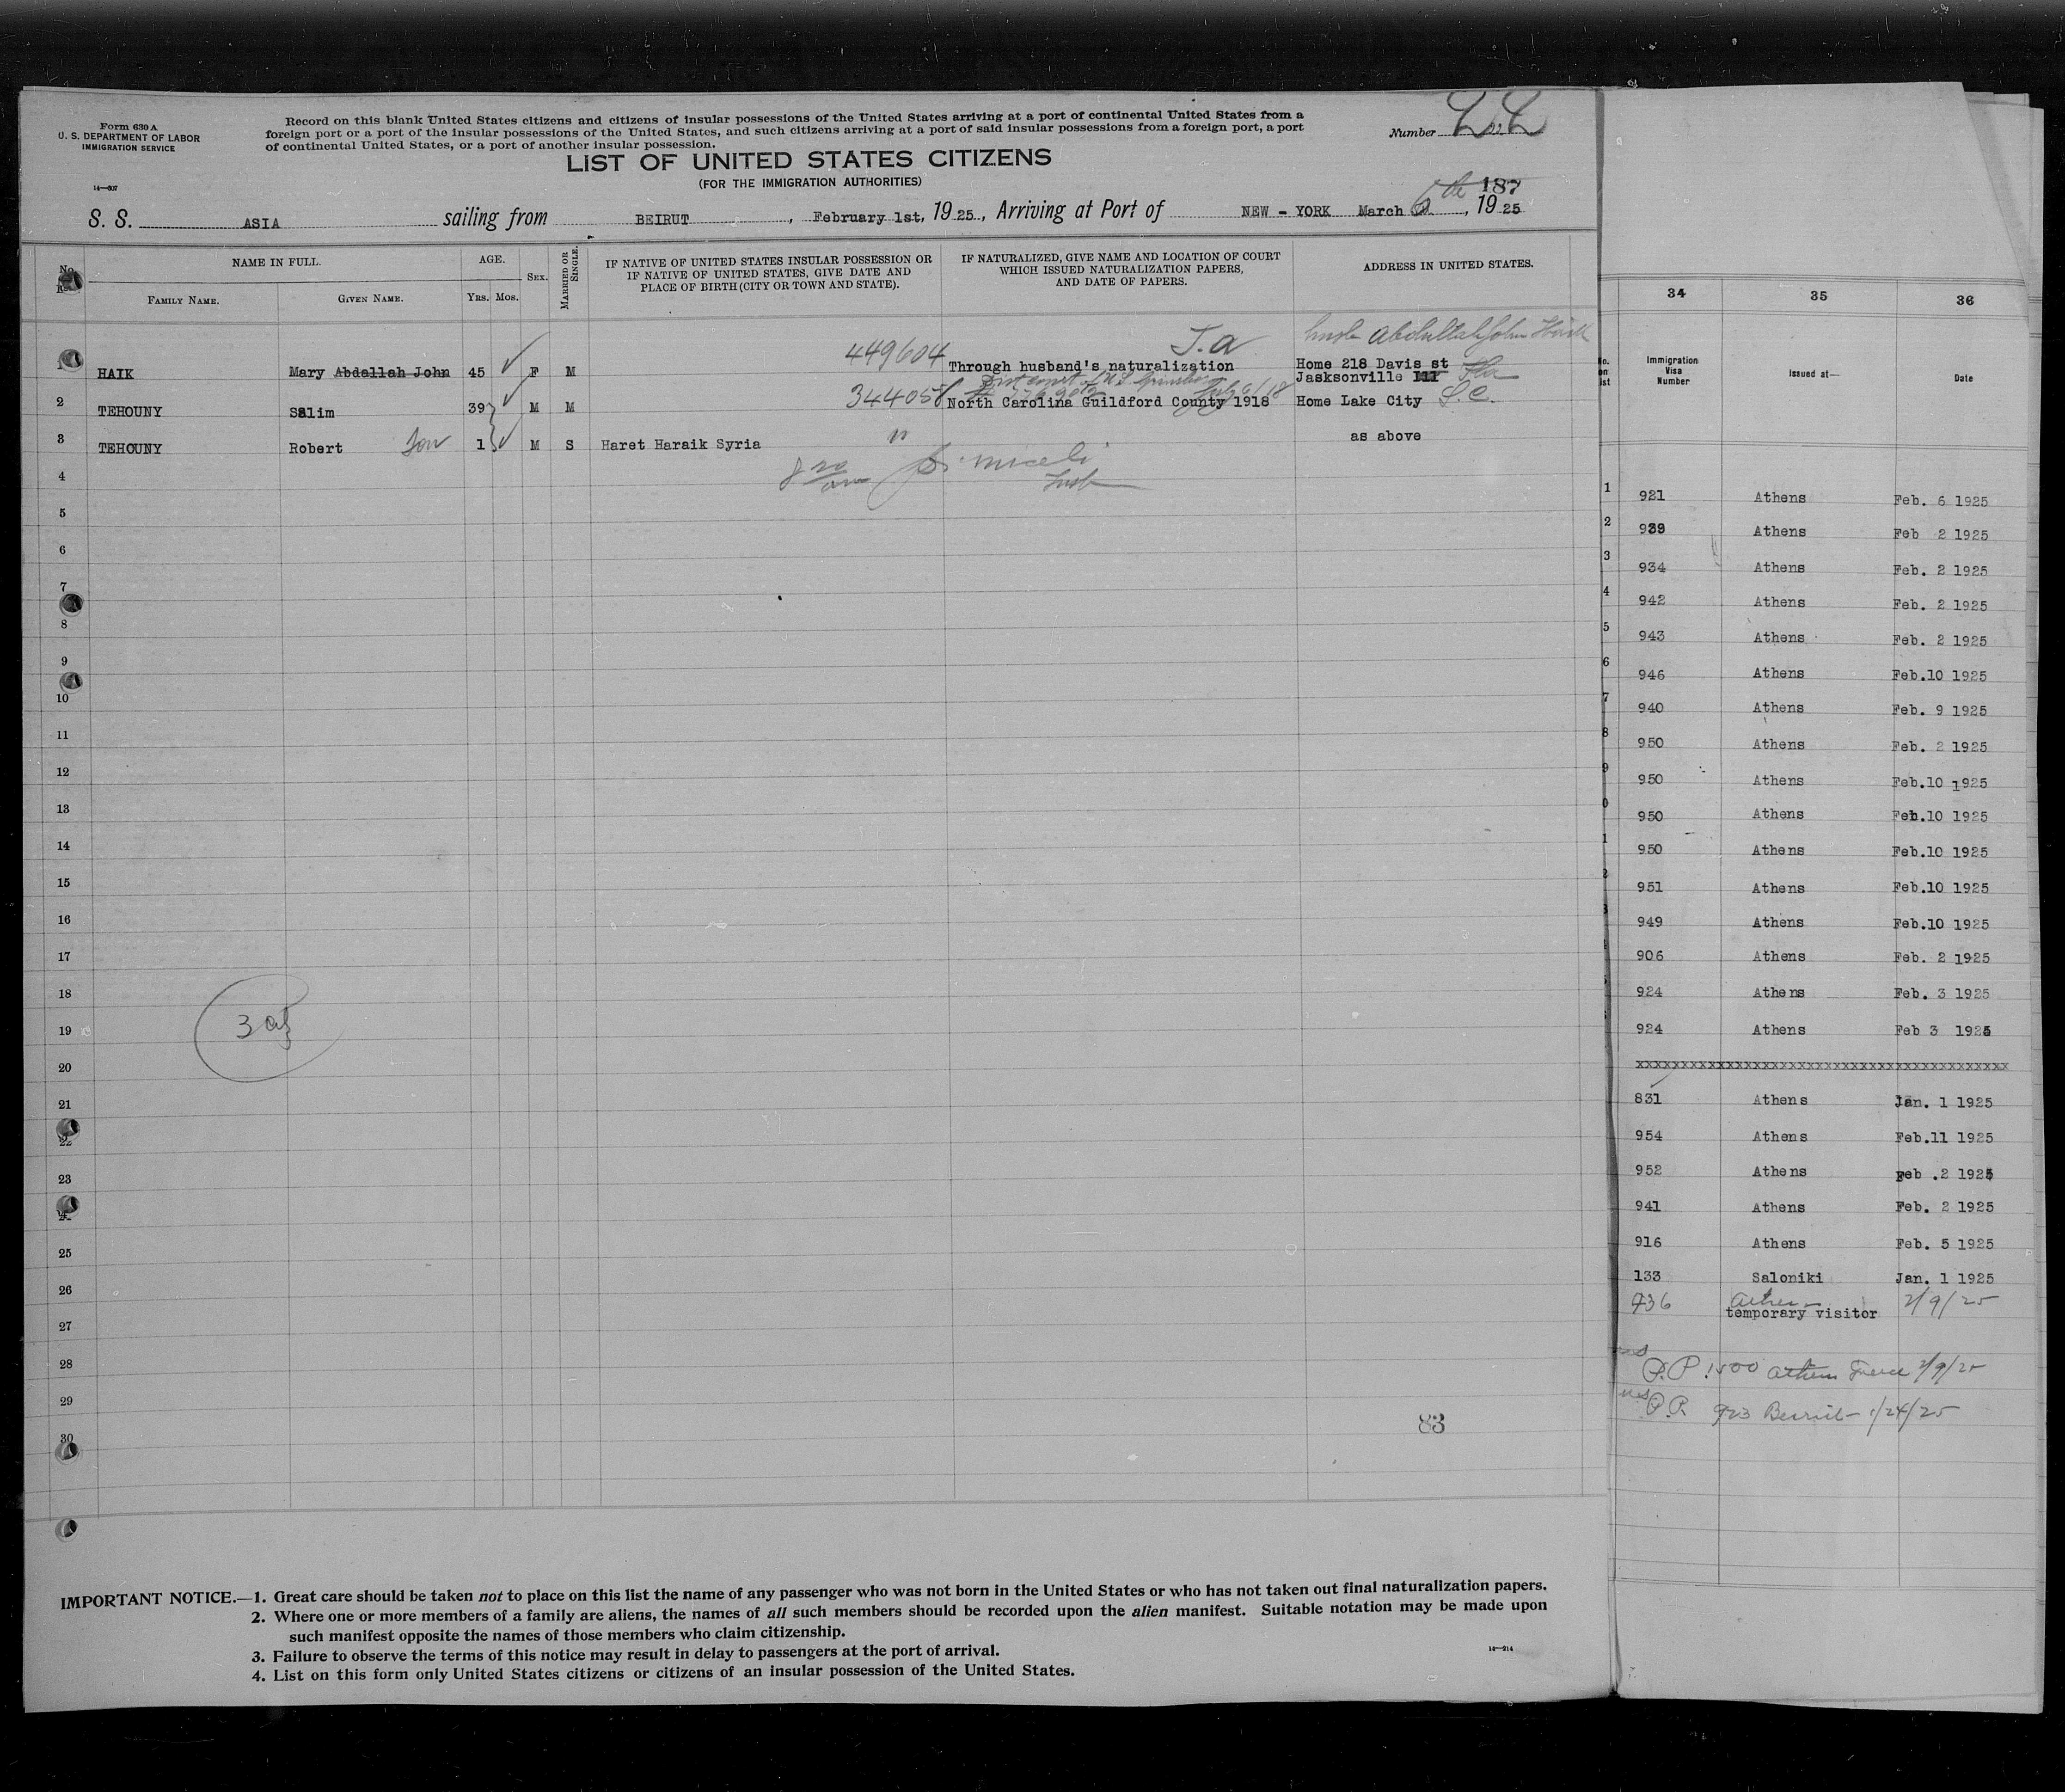 Form 630 A
U. S. DEPARTMENT OF LABOR
IMMIGRATION SERVICE
14—307
Record on this blank United States citizens and citizens of insular possessions of the United States arriving at a port of continental United States from a
foreign port or a port of the insular possessions of the United States, and such citizens arriving at a port of said insular possessions from a foreign port, a port
of continental United States, or a port of another insular possession.
Number
LIST OF UNITED STATES CITIZENS
(FOR THE IMMIGRATION AUTHORITIES)
187
S. S. ASIA sailing from BEIRUT, February 1st, 1925, Arriving at Port of NEW - YORK March 6th, 1925
No.
NAME IN FULL.
FAMILY NAME.
GIVEN NAME.
AGE.
YRS. MOS.
SEX.
MARRIED OR SINGLE.
IF NATIVE OF UNITED STATES INSULAR POSSESSION OR
IF NATIVE OF UNITED STATES, GIVE DATE AND
PLACE OF BIRTH (CITY OR TOWN AND STATE).
IF NATURALIZED, GIVE NAME AND LOCATION OF COURT
WHICH ISSUED NATURALIZATION PAPERS,
AND DATE OF PAPERS.
ADDRESS IN UNITED STATES.
449604 Abdullah John
1 HAIK Mary Abdallah John 45 F M Through husband's naturalization Home 218 Davis st
Jasksonville Ill Fla
2 TEHOUNY Salim 39 M M 344058 North Carolina Guildford County 1918 Home Lake City S.C.
3 TEHOUNY Robert Son 1 M S Haret Haraik Syria " as above
Miceli
4
5
6
7
8
9
10
11
12
13
14
15
16
17
18
19
3
20
21
22
23
24
25
26
27
28
29
30
83
IMPORTANT NOTICE.—1. Great care should be taken not to place on this list the name of any passenger who was not born in the United States or who has not taken out final naturalization papers.
2. Where one or more members of a family are aliens, the names of all such members should be recorded upon the alien manifest. Suitable notation may be made upon
such manifest opposite the names of those members who claim citizenship.
3. Failure to observe the terms of this notice may result in delay to passengers at the port of arrival.
4. List on this form only United States citizens or citizens of an insular possession of the United States.
14—214
34 35 36
Immigration
Visa
Number
Issued at—
Date
1 921 Athens Feb. 6 1925
2 939 Athens Feb 2 1925
3 934 Athens Feb. 2 1925
4 942 Athens Feb. 2 1925
5 943 Athens Feb. 2 1925
6 946 Athens Feb.10 1925
7 940 Athens Feb. 9 1925
8 950 Athens Feb. 2 1925
9 950 Athens Feb.10 1925
0 950 Athens Feb.10 1925
1 950 Athens Feb.10 1925
2 951 Athens Feb.10 1925
3 949 Athens Feb.10 1925
906 Athens Feb. 2 1925
924 Athens Feb. 3 1925
924 Athens Feb 3 1925
xxxxxxxxxxxxxxxxxxxxxxxxxxxxxxxxxxxxxxxx
831 Athens Jan. 1 1925
954 Athens Feb.11 1925
952 Athens Feb .2 1925
941 Athens Feb. 2 1925
916 Athens Feb. 5 1925
133 Saloniki Jan. 1 1925
936 2/9/25
temporary visitor
P.P. 1500 Athens Greece 2/9/25
P.P. 923 Beirut - 1/24/25